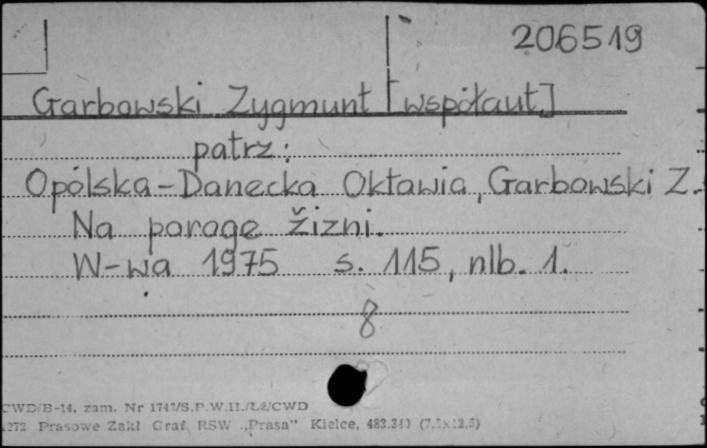 206519
Garbowski Zygmunt [współaut.]
patrz:
Opolska-Danecka Oktawia, Garbowski Z.
Na poroge žizni.
W-wa 1975 s. 115, nlb. 1.
8
CWD/B-14. zam. Nr 1747/S.P.W.II./Łź/CWD
Prasowe Zakł. Graf. RSW „Prasa" Kielce,